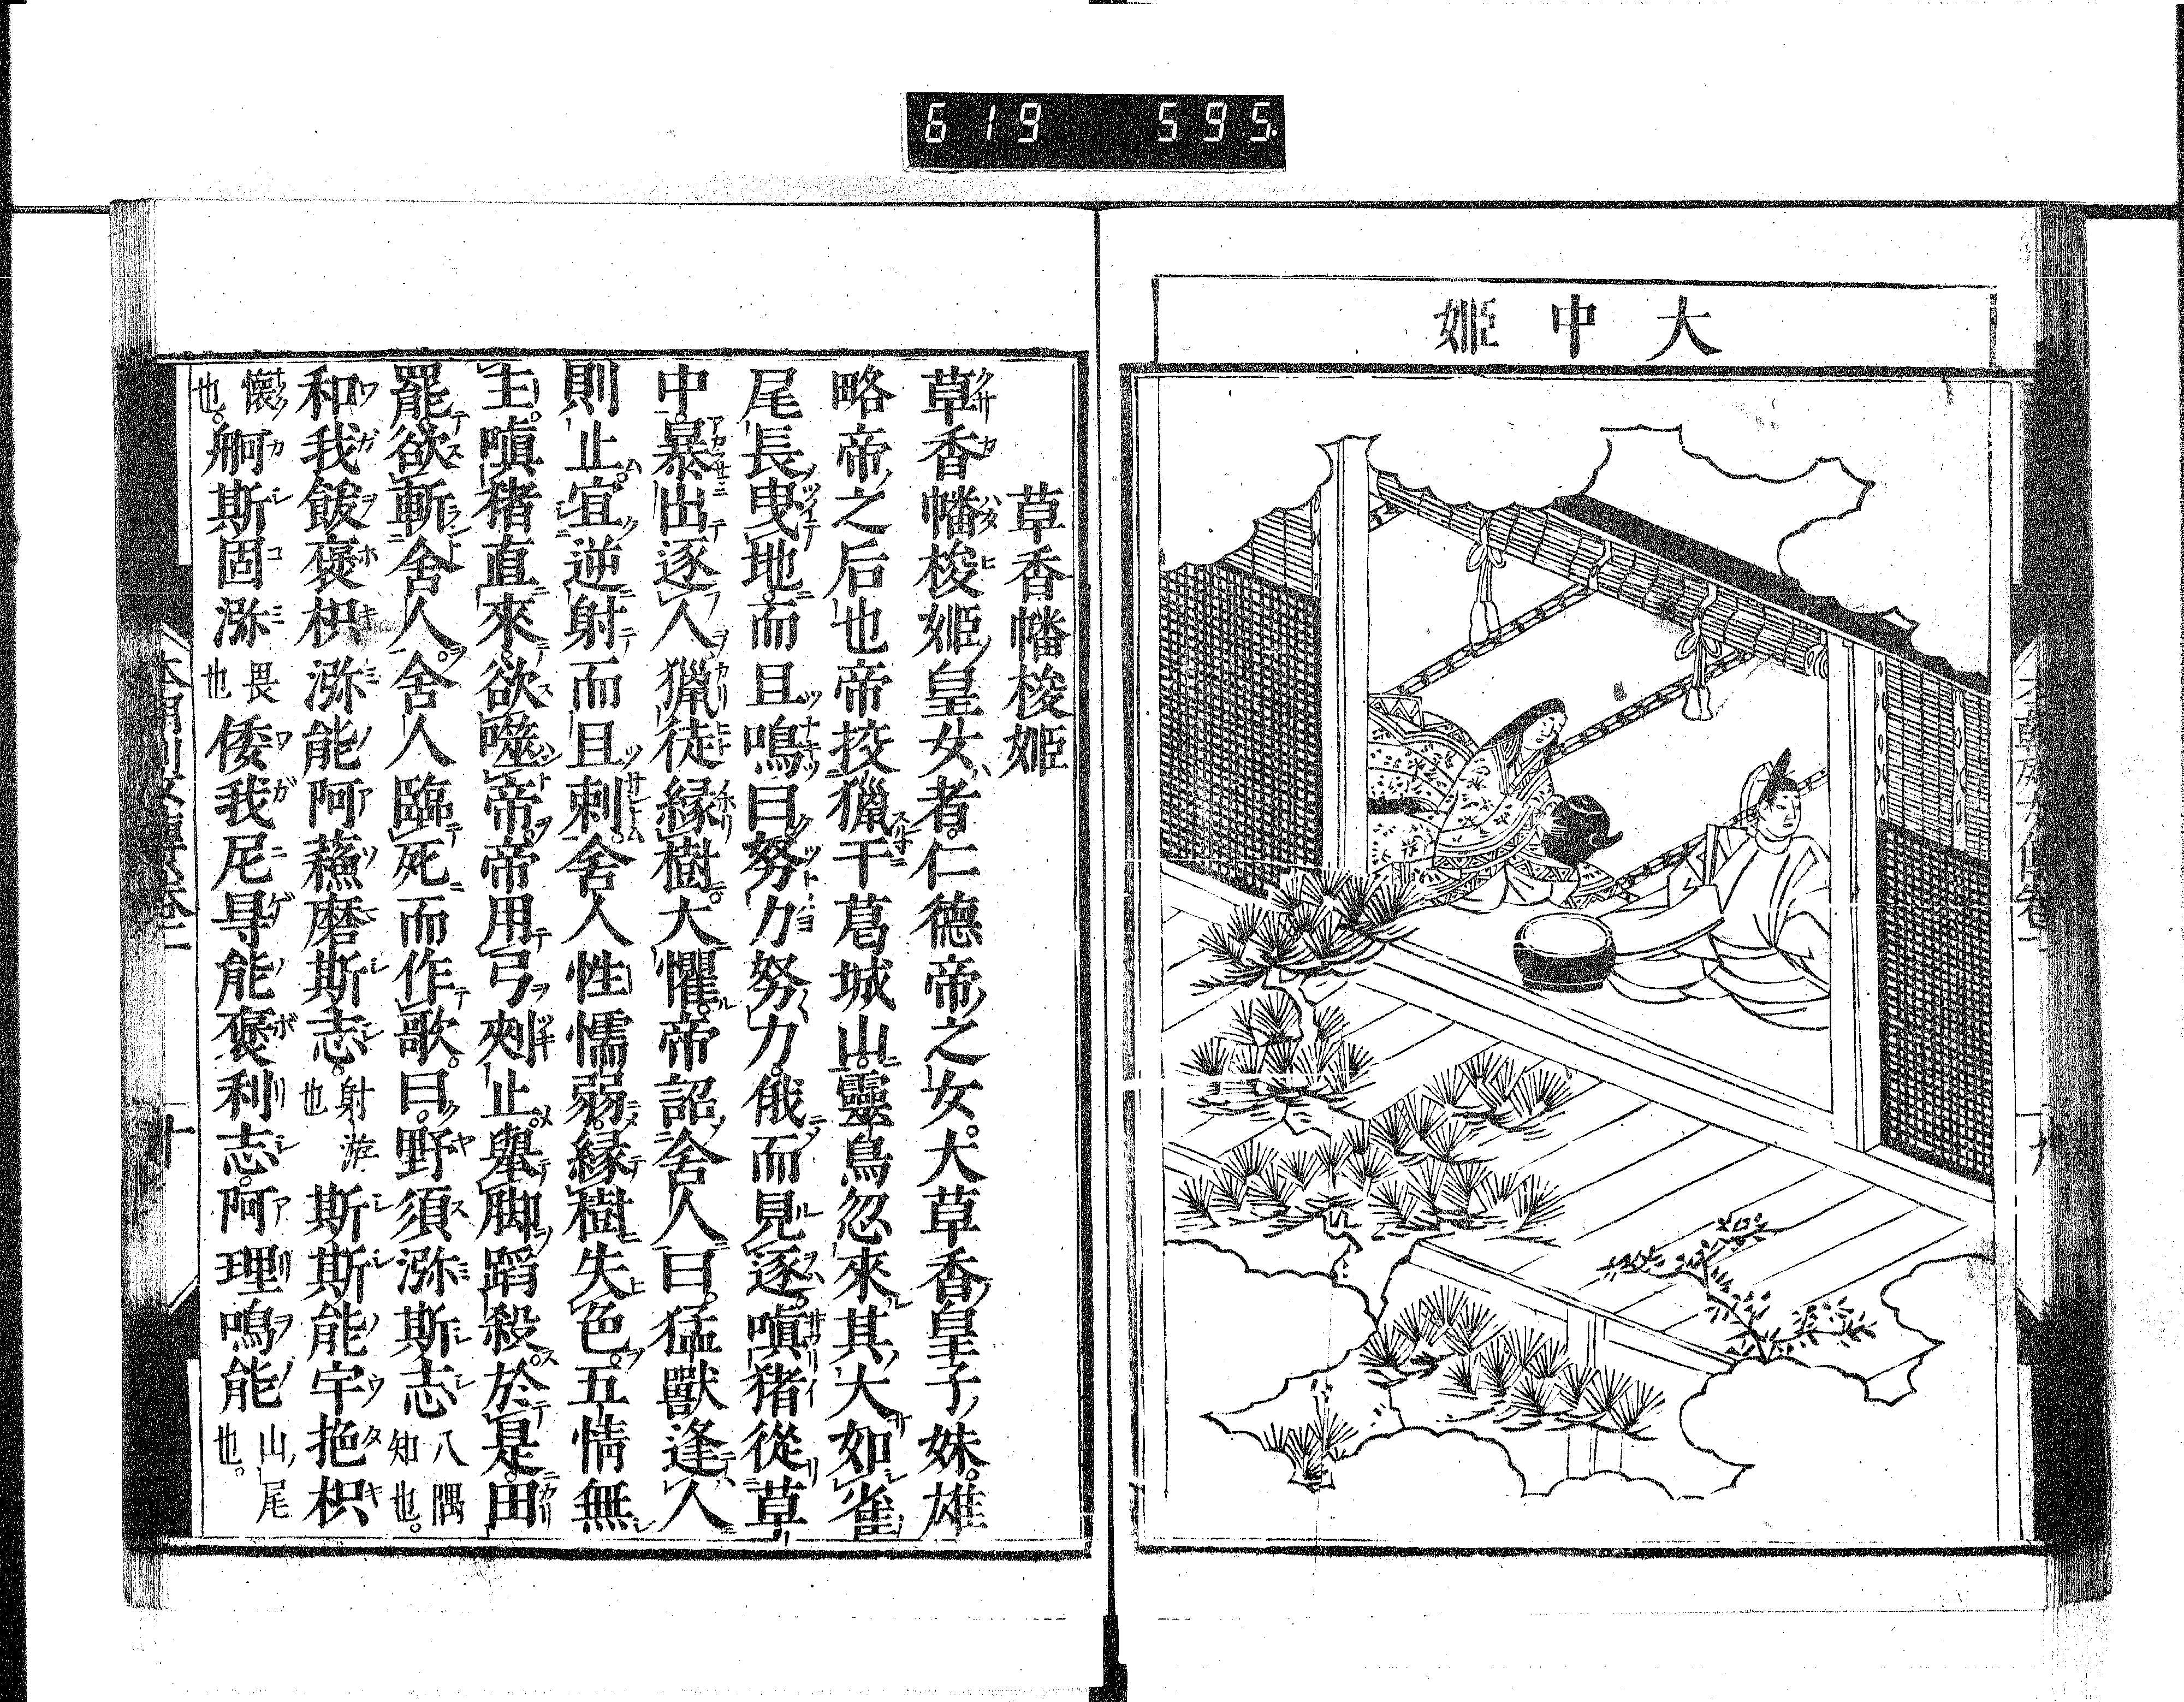 619 595.
大中姫
草香幡梭姫
草香幡梭姫皇女者。仁德帝之女。大草香皇子妹。雄
略帝之后也帝挍獵于葛城山。靈鳥忽來其大如雀
尾長曳地。而且鳴曰。努力努力。俄而見逐。嗔猪從草
中。暴出逐人獵徒縁樹。大懼。帝詔舍人曰。猛獸逢人
則止。宜逆射而且刺。舍人性懦弱。縁樹失色。五情無
主。嗔猪直來。欲噬帝。帝用弓刺止。舉脚蹈殺。於是。田
罷欲斬舍人。舍人臨死而作歌。曰。野須瀰斯志八隅知也。
和我飯褒枳瀰能阿蘓磨斯志。射游也斯斯能宇拖枳
懷也。舸斯固瀰畏也倭我尼㝵能褒利志。阿理鳴能山尾也。
十